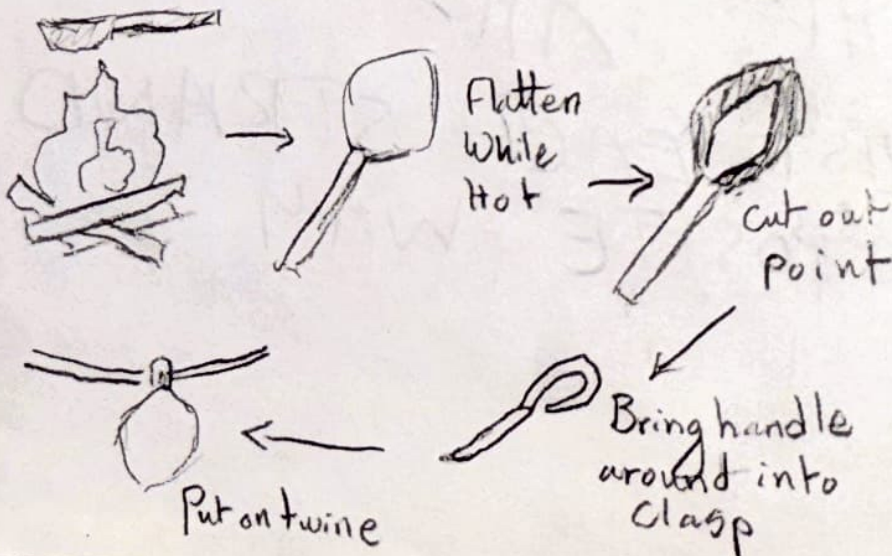 Flatten
While
Hot
Cut out
Point
Bring handle
around into
Clasp
Put on twine